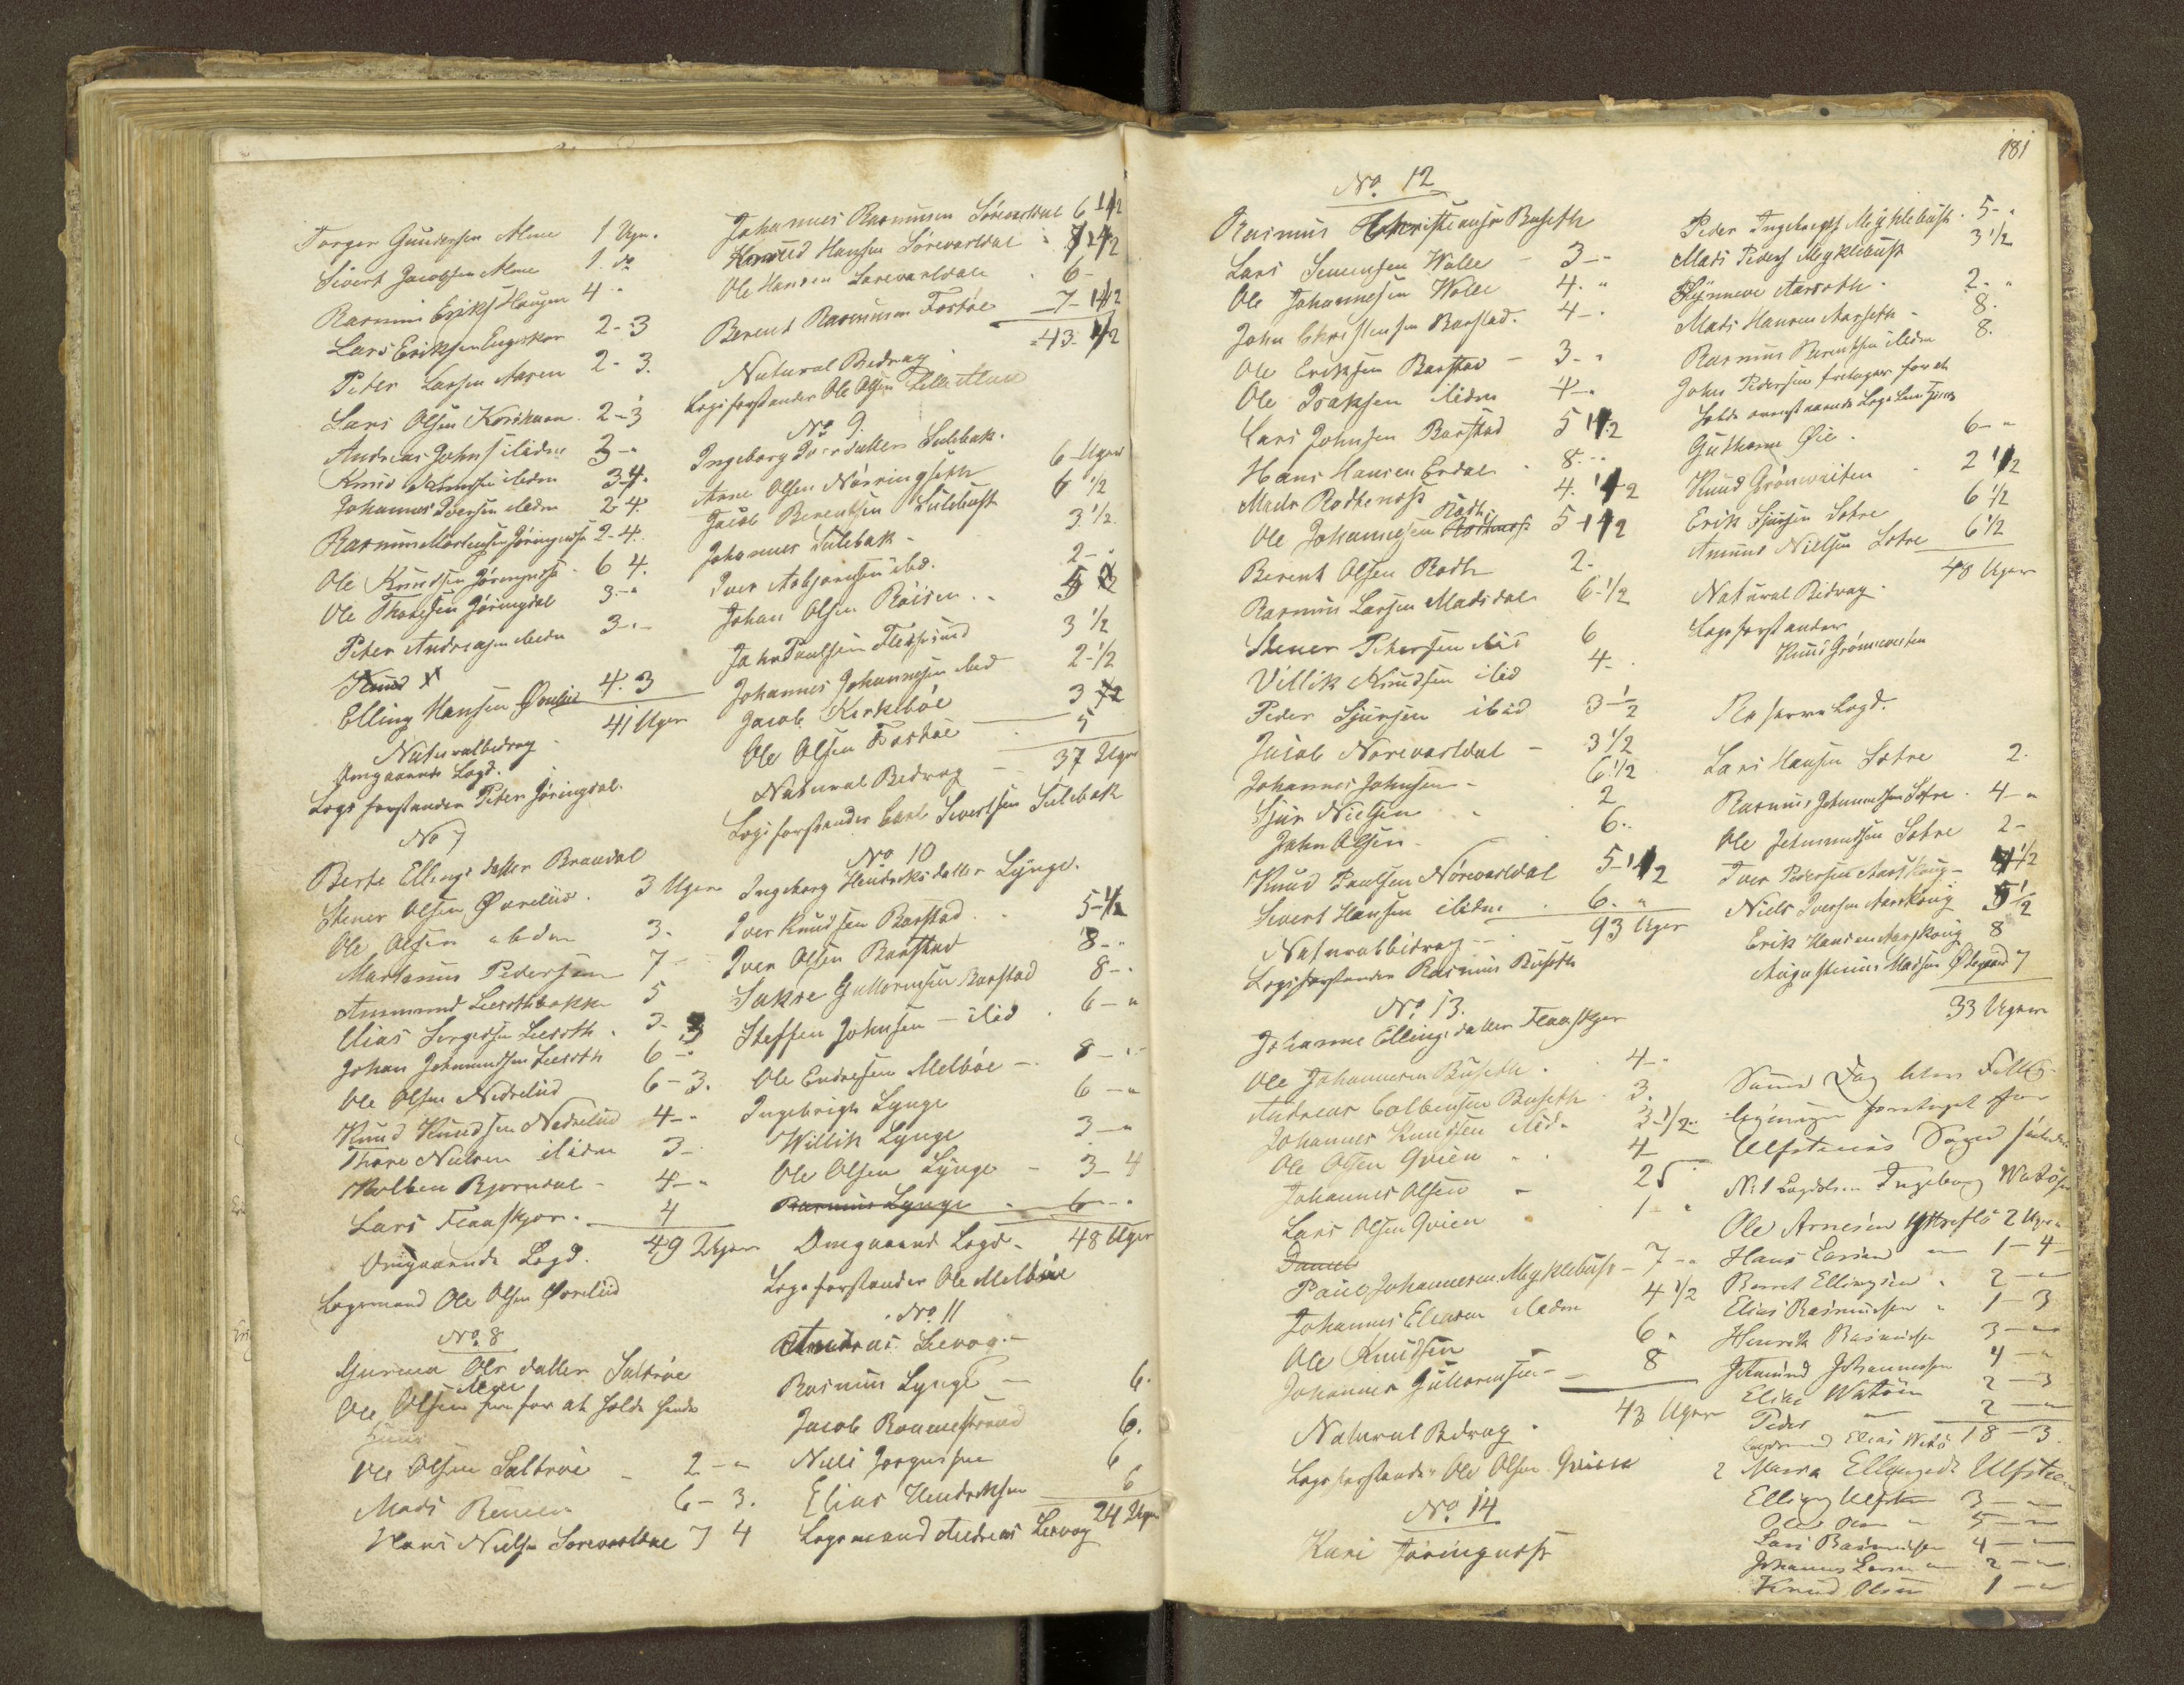 Torger Gundersen Alme 1 Ugr.
Sivert Jacobsen Alme 1. do
Rasmus Eriks Haugen 4 "
Lars Eriksen Engeskar 2-3
Peter Larsen Aasen 2-3.
Lars Olsen Korsham 2-3
Andreas Johns ibidm 3-"
Knud ibidm 3-4.
Johannes Iversen ibidm 2-4.
Rasmus Mortensen Jøringnæs 2-4.
Ole Knudsen Jøringnæs 6 4.
Ole Jøringdal 3-"
Peter Andreasen ibidm 3-"-
Knud X
Elling Hansen Øvrelid 4. 3
41 Uger
Naturalbidrag
Omgaaende Lægd.
Lægsforstander Peter Jøringdal.
No 7
Berte Ellingsdatter Brandal
Stener Olsen Øvrelid. 3 Uger
Ole Olsen ibidm 3.
Martinus Pedersen 7 -
Ammund Lierothbakke 5
Elias Lieroth 3-3
Johan Jetmundsen Lieroth 6-"
Ole Olsen Nedrelid 6-3.
Knud Knudsen Nedrelid 4-"
Thore Nielsen ibidm 3-
Kolben Bjørndal - 4-"
Lars Flaaskjær. 4
49 Uger
Omgaaende Lægd.
Lægsmand Ole Olsen Øvrelid
No. 8
Gurina Olsdatter Saltrøe
Ole Olsen for at holde hende
Ole Olsen Saltrøe - 2-"
Mads 6-3.
Hans Nielsen Sørevartdal 7 4
Johannes Rasmusen Sørevartdal 6 1/2
Knud Hansen Sørevartdal 7 1/2
Ole Hansen Sørevartdal 6-
Berent Rasmusen Fostøe 7-1/2
43. 1/2
Natural Bidrag
Lægsforstander Ole Olsen Lille Alme
No 9.
Ingeborg Iversdatter Sulebak.
Arne Olsen Nørringseth 6 Uger
Jacob Berentsen Sulebust 6 1/2
Johannes Sulebak - 3 1/2.
Iver Asbjørnsen ibd. 2-"
Johan Olsen Røisen
John Paulsen Flessund 3 1/2
Johannes Johannesen ibid 2-1/2
Jacob Kirkebøe 3 1/2
Ole Olsen Fostøe 5
37 Uger
Natural Bidrag
Lægsforstander Carl Sivertsen Sulebak
No. 10
Ingeborg Hendriksdatter Lynge.
Iver Knudsen Barstad 5-1/2
Iver Olsen Barstad 8-"
Sakse Guttormsen Barstad 8-"
Steffen Johnsen - ibid. 6-"
Ole Endresen Melbøe - 8-"-
Ingebrigt Lynge 6-"
Willik Lynge 3-"
Ole Olsen Lynge - 3-4
Rasmus Lynge 6-"
48 Uger
Omgaaende Lægd.
Lægsforstander Ole Melbøe
No. 11
Andreas Liavog.
Rasmus Lynge - 6.
Jacob Rommestrand 6.
Niels Jørgensen 6
Elias Hendriksen 6
24 Uger
Lægsmand Andreas Liavog
181
No. 12
Rasmus Christiansen Buseth
Lars Simensen Wolle - 3-"
Ole Johannesen Wolle 4. "
John Christensen Barstad. 4-.
Ole Eriksen Barstad - 3-"
Ole Isaksen ibidm 4-"
Lars Johnsen Barstad 5 1/2
Hans Hansen Erdal 8."
Mads Rødtenæs 4. 1/2
Ole Johannesen Rødtenæs Rødt 5-1/2
Berent Olsen Rødt 2.
Rasmus Larsen Madsdal 6-1/2
Stener Petersen ibid 6
Villik Knudsen ibid 4.
Peder Sjursen ibid 3-1/2
Jacob Nørevartdal - 3 1/2
Johannes Johnsen - 6 1/2
Sjur Nielsen 2
John Olsen 6.
Knud Paulsen Nørevartdal 5-1/2
Sivert Hansen ibidm 6. "
93 Uger
Naturalbidrag
Lægsforstander Rasmus Buseth
No. 13.
Johanne Ellingsdatter Flaaskjær
Ole Johannesen Buseth. 4-"
Andreas Colbensen Buseth 3.
Johannes Knudsen ibid 3-1/2
Ole Olsen Qvien 4
Johannes Olsen 2
Lars Olsen Qvien 1 "
Daniel
Paul Johannesen Myklebust - 7-"
Johannes Eliasen ibidem 4 1/2
Ole Knudsen 6"
Johannes Guttormsen - 8
43 Uger
Natural Bidrag.
Lægsforstander Ole Olsen Qvien
No. 14
Kari Jøringnæs
Peder Ingebrigts Myklebust. 5-"
Mads Peders Myklebust 3 1/2
Synneve Aarseth. 2-"
Mads Hansen Aarseth - 8.
Rasmus Berentsen ibidm 8.
John Pedersen fritages for at
holde
Guthorm Øie. 6-"
Knud Grønneviten 2 1/2
Erik Sjursen Sætre 6 1/2
Amund Nielsen Sætre 6 1/2
48 Uger
Natural Bidrag.
Lægsforstander
Knud Grønneviten
Reserve Lægd.
Lars Hansen Sætre 2.
Rasmus Jetmundsen Sætre. 4-"
Ole Jetmundsen Sætre 2-
Iver Pedersen Aarskoug 4 1/2
Niels Iversen Aarskoug 5 1/2
Erik Hansen Aarskoug 8
Augustinus Madsen Ødegaard 7
33 Uger
Samme Dag blev Fattig-
ligningen foretaget for
Ulfsteens Sogn saaledes
No 1 Ingeborg Watøe
Ole Arnesen Yttreflø 2 Uger
Hans Larsen " 1-4
Berret Ellingsen " 2-"
Elias Rasmussen " 1-3
Henrik Rasmussen 3-"
Jetmund Johannessen 4-"
Elias Watøen 2-3
Peder " 2-"
18-3.
Lægsmand Elias Watø
2 Maria Ellingsdt Ulfsteen
Elling Ulfsteen 3-"
Ole Olsen " 5-"
Lars Rasmussen 4-"
Johannes Larsen " 2-"
Knud Olsen 1-"